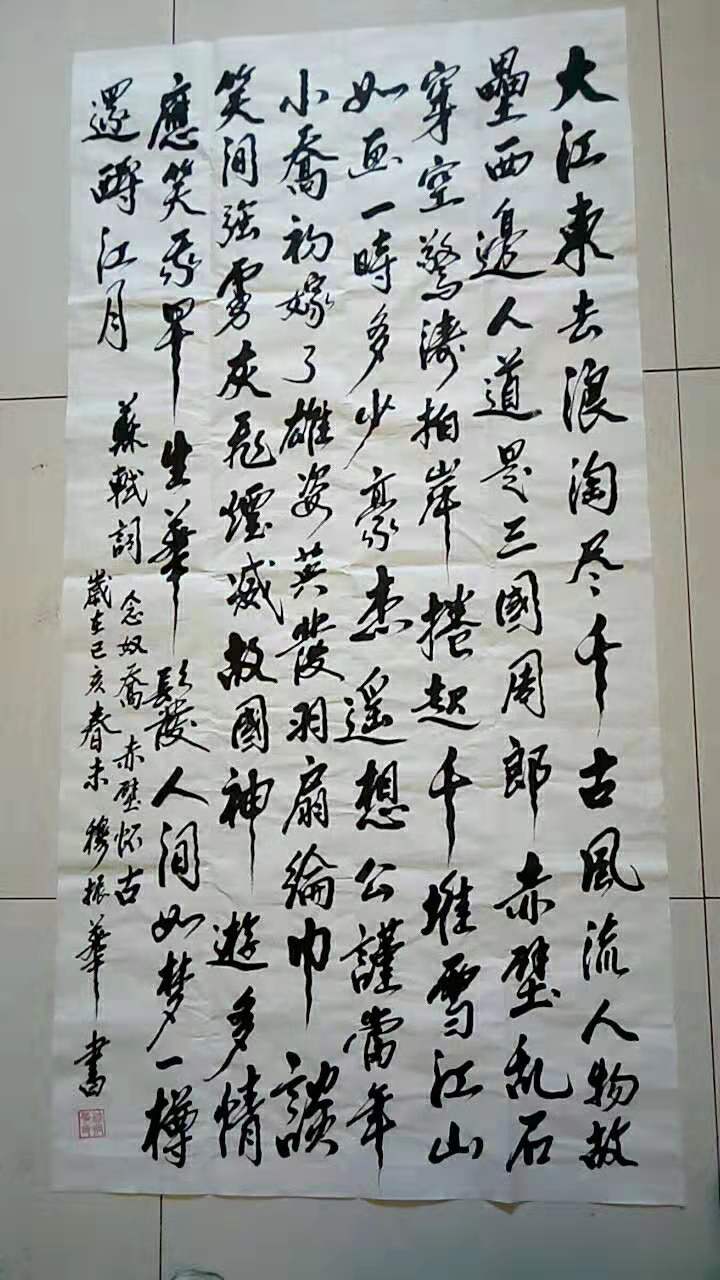 大江東去浪淘尽千古風流人物故
壘西邊人道是三國周郎赤壁乱石
穿空驚濤拍岸捲起千堆雪江山
如画一時多少豪杰遥想公謹當年
小喬初嫁了雄姿英發羽扇綸巾談
笑间强虜灰飛煙滅故國神遊多情
應笑我早生華髮人间如梦一樽
還酹江月
蘇軾詞
念奴喬赤壁怀古
歲在己亥春末穆振華書